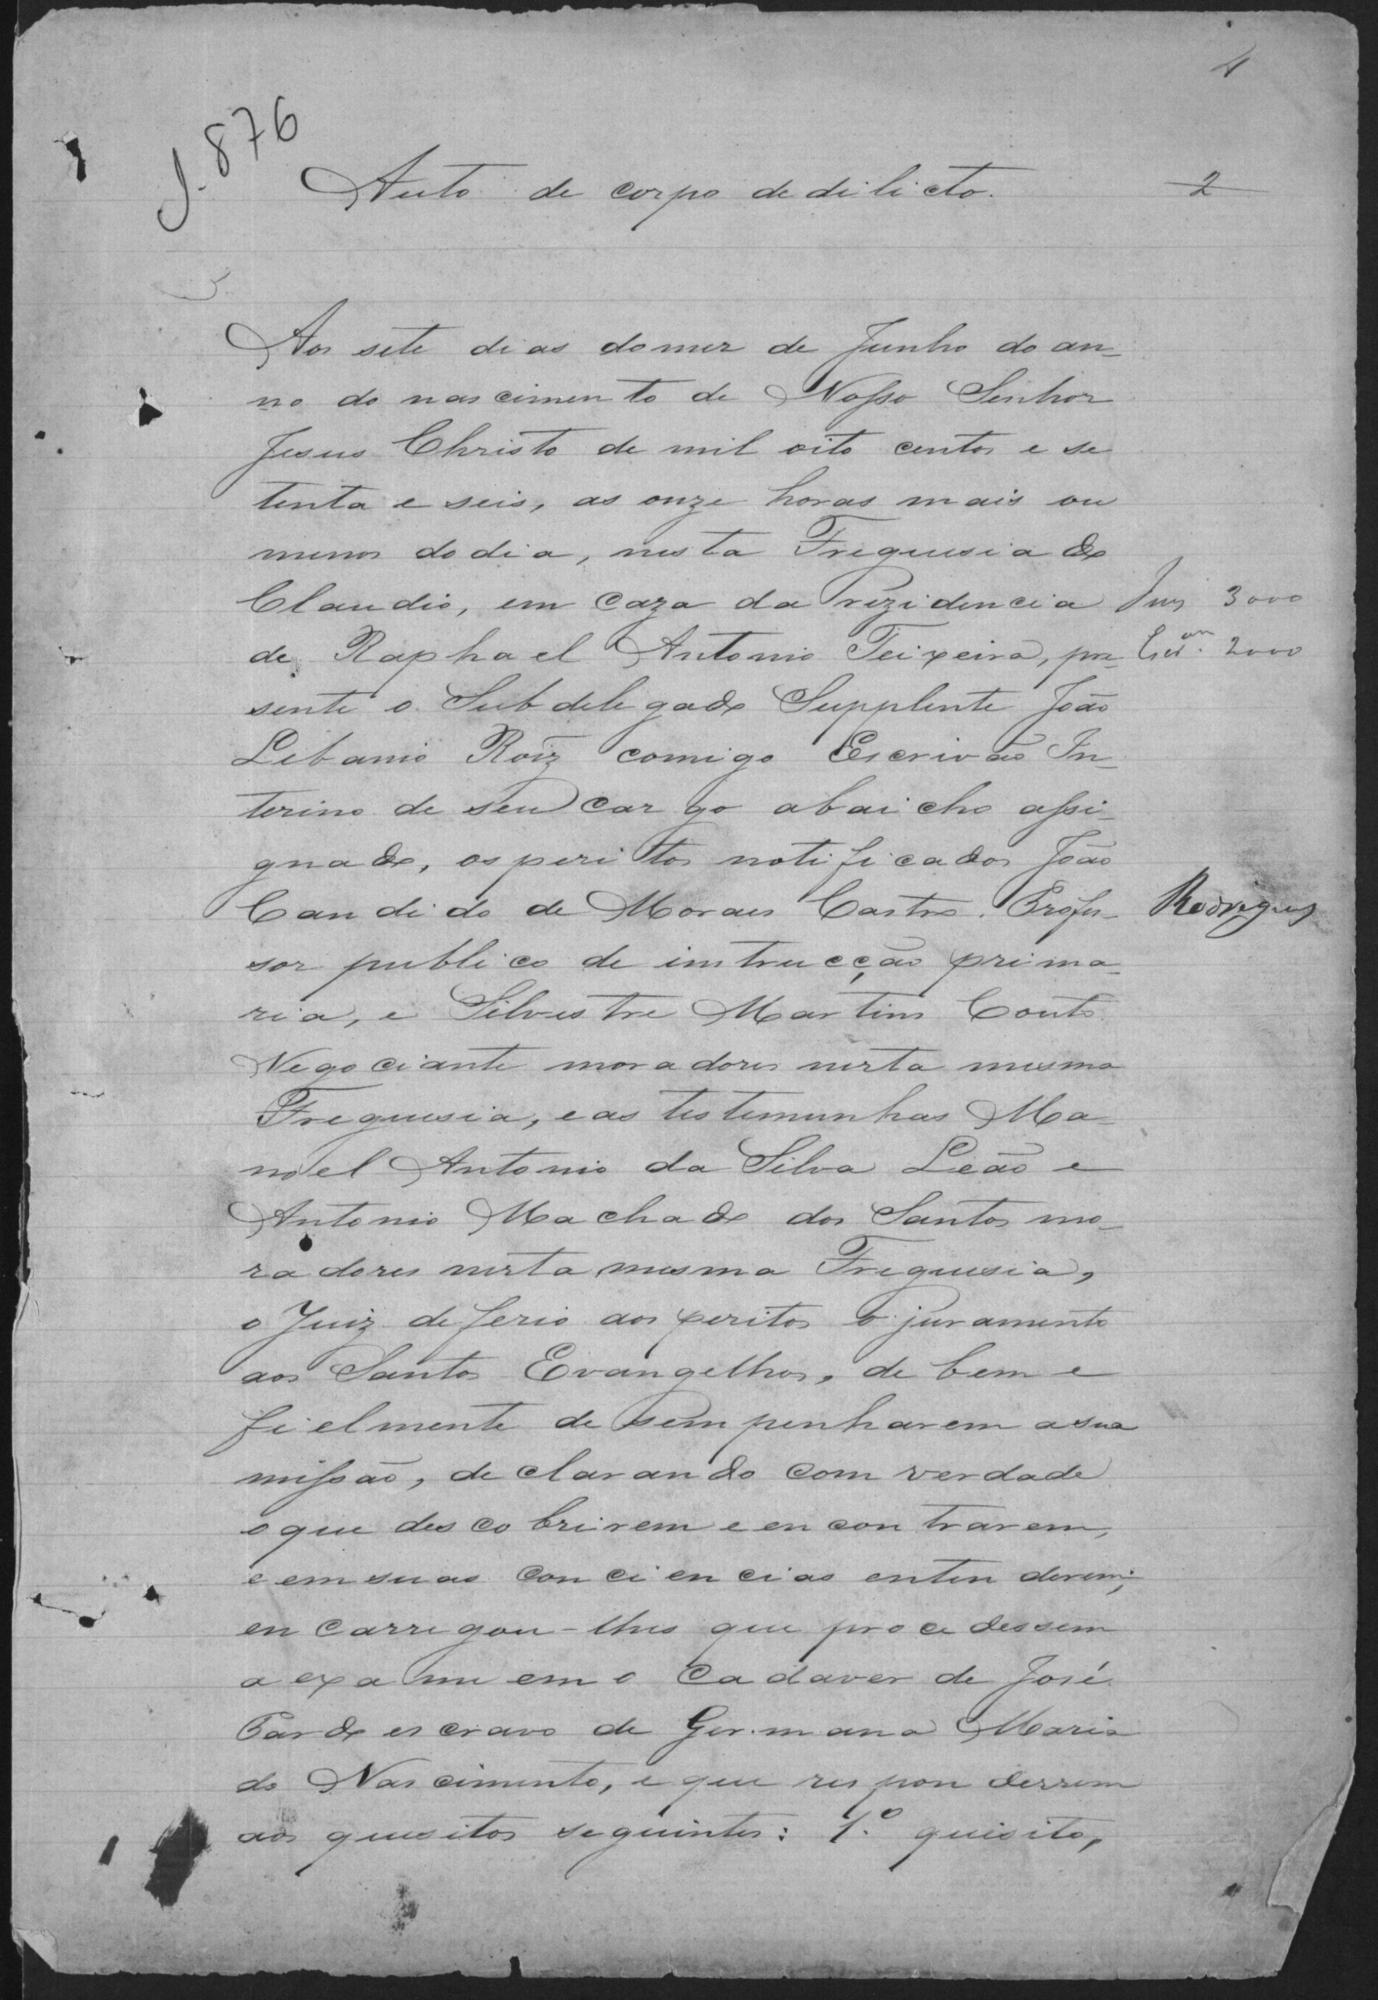 4
J. 876
Auto de corpo de dilicto.
2
Aos sete dias do mez de Junho do an-
no do nascimento de Nosso Senhor
Jesus Christo de mil oito centos e se
tenta e seis, as onze horas mais ou
menos do dia, nesta Freguesia do
Claudio, em caza da rezidencia
Juiz 3000
de Raphael Antonio Teixeira, pre
Escr.am 2000
sente o Subdelegado Supplente João
Libanio Roiz comigo Escrivão In-
terino de seu cargo abaicho assi-
gnado, os peritos notificados João
Candido de Moraes Castro. Profes-
Rodrigues
sor publico de instrucção prima-
ria, e Silvestre Martins Couto
Negociante moradores nesta mesma
Freguesia, e as testemunhas Ma-
noel Antonio da Silva Leão e
Antonio Machado dos Santos mo-
radores nesta mesma Freguesia,
o Juiz deferio aos peritos o juramento
aos Santos Evangelhos, de bem e
fielmente desempenharem a sua
missão, declarando com verdade
o que descobrirem e encontrarem,
e em suas conciencias entenderem;
encarregou-lhes que procedessem
a exame em o cadaver de José
Pardo escravo de Germana Maria
do Nascimento, e que respondessem
aos quesitos seguintes: 1.º quisito,